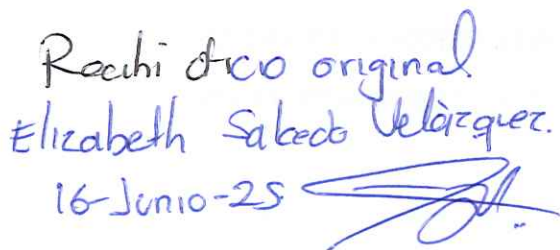 Recibi oficio original
Elizabeth Salcedo Velázquez.
16-Junio-25